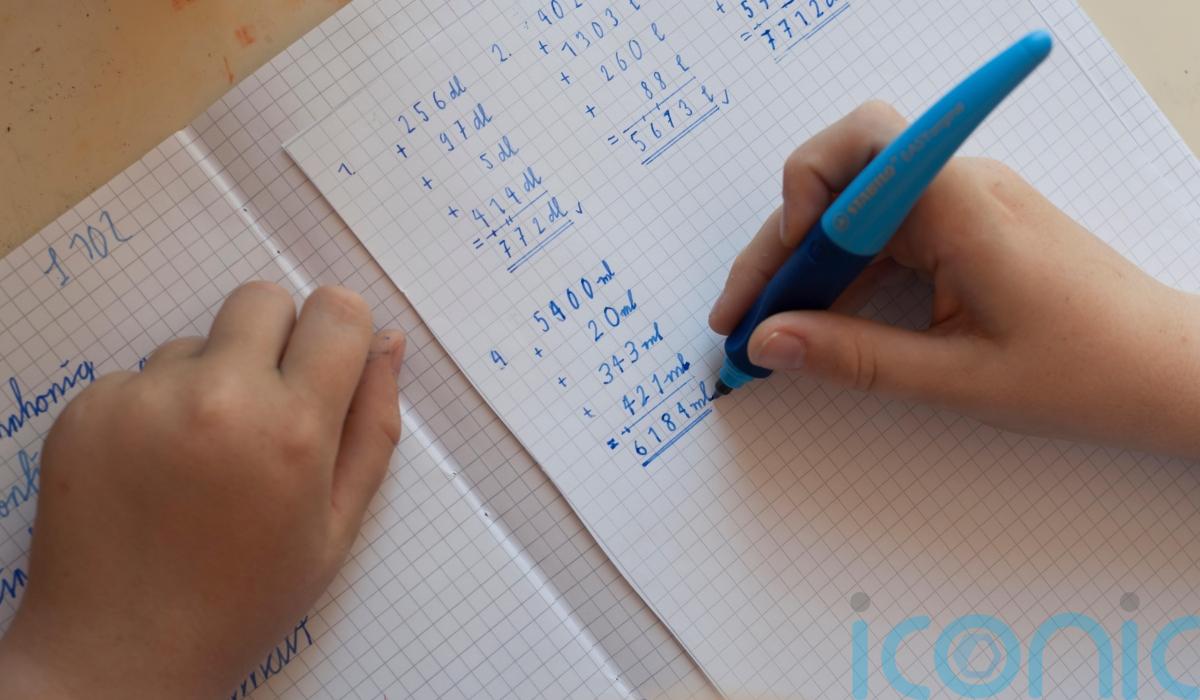 1 702
1. 256 dl
+ 97 dl
+ 5 dl
+ 414 dl
= 772 dl ✓
2. 402
+ 1303 l
+ 260 l
+ 88 l
= 5673 l ✓
+ 5
= 7712
4. 5400 ml
+ 20 ml
+ 343 ml
+ 421 ml
= 6184 ml
STABILO EASYoriginal
iconic